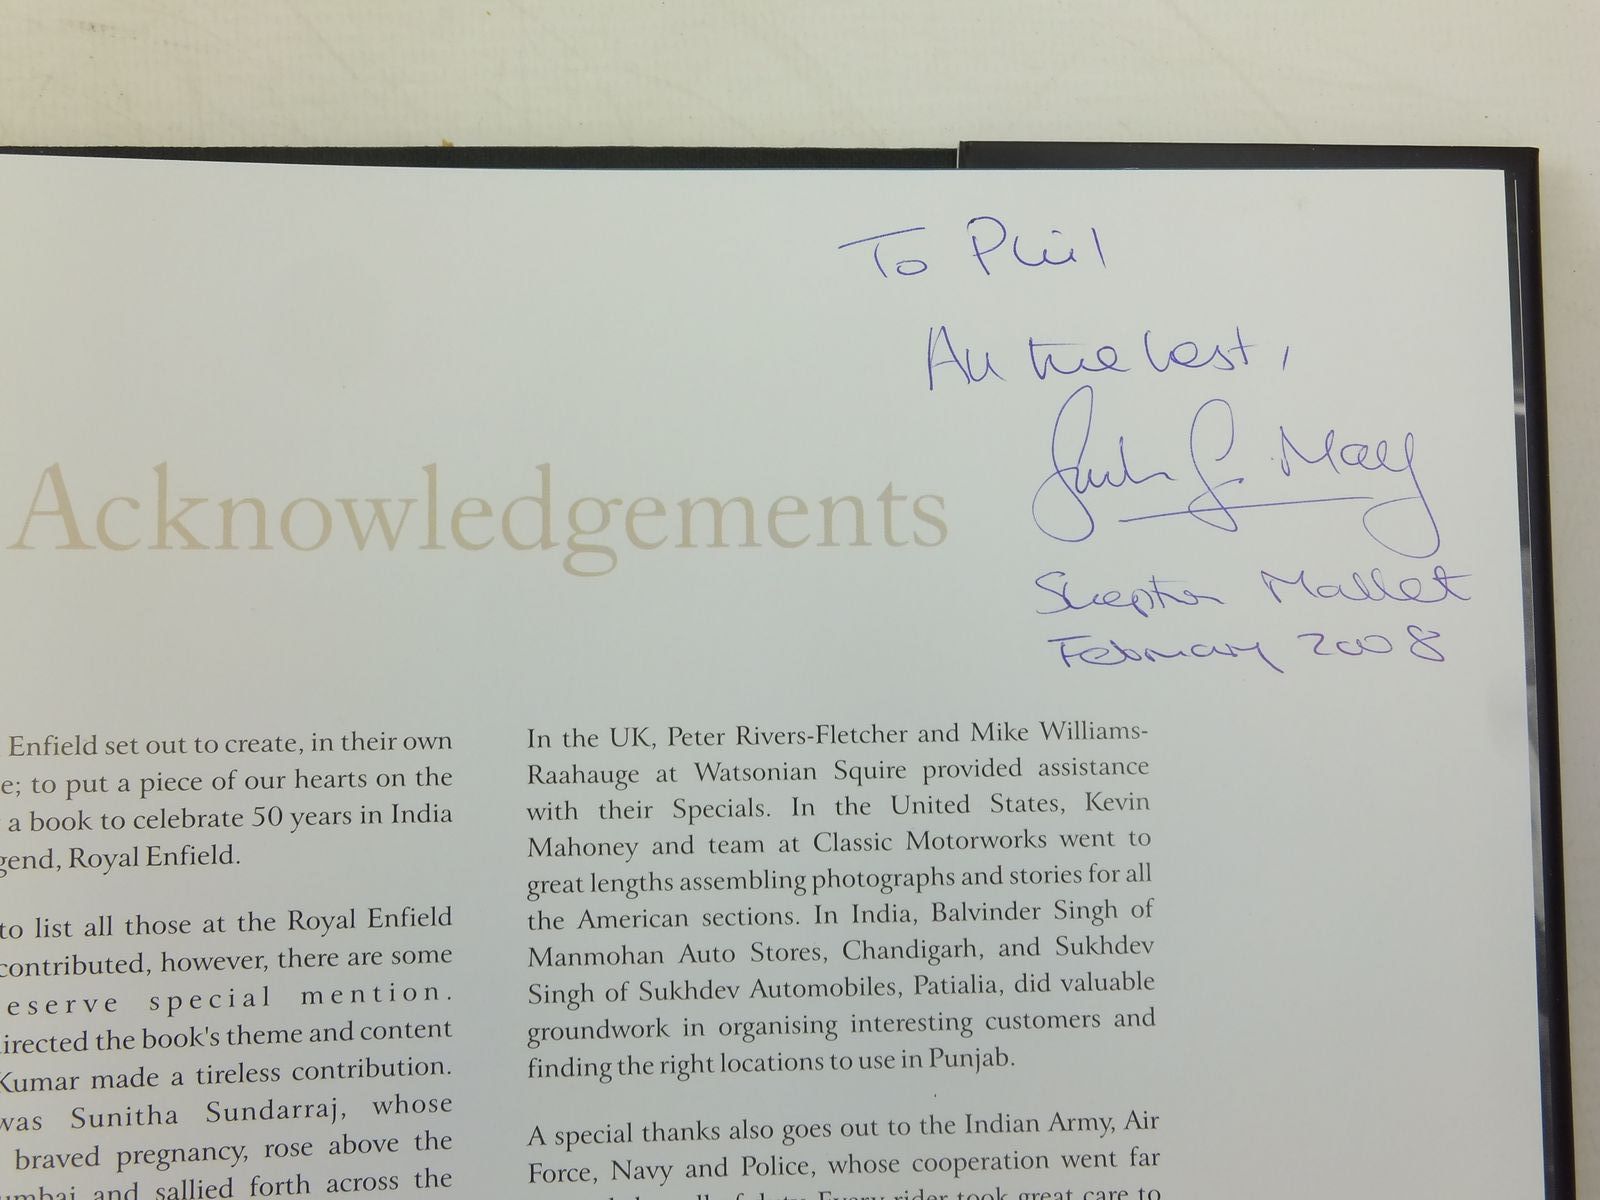 To Phil
All the best,
Gordon G. May
Shepton Mallet
February 2008
Acknowledgements
Enfield set out to create, in their own
e; to put a piece of our hearts on the
a book to celebrate 50 years in India
gend, Royal Enfield.
to list all those at the Royal Enfield
contributed, however, there are some
eserve special mention.
irected the book's theme and content
Kumar made a tireless contribution.
was Sunitha Sundarraj, whose
braved pregnancy, rose above the
umbai and sallied forth across the
In the UK, Peter Rivers-Fletcher and Mike Williams-
Raahauge at Watsonian Squire provided assistance
with their Specials. In the United States, Kevin
Mahoney and team at Classic Motorworks went to
great lengths assembling photographs and stories for all
the American sections. In India, Balvinder Singh of
Manmohan Auto Stores, Chandigarh, and Sukhdev
Singh of Sukhdev Automobiles, Patialia, did valuable
groundwork in organising interesting customers and
finding the right locations to use in Punjab.
A special thanks also goes out to the Indian Army, Air
Force, Navy and Police, whose cooperation went far
Every rider took great care to